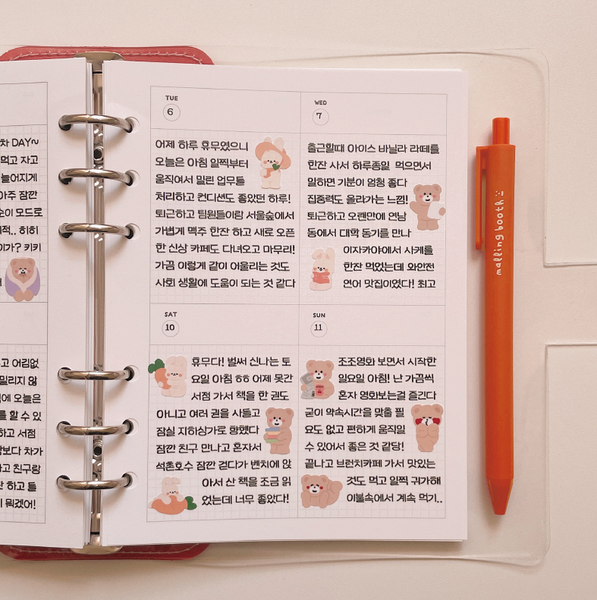 차 DAY~
먹고 자고
아주 잠깐
순이 모드로
히히
이가? 키키
고 어김없
밀리지 않
에 오늘은
를 할 수 있
하고 서점
보다 차가
고 친구랑
한 하고 들
뭐겠어!
TUE
6
어제 하루 휴무였으니
오늘은 아침 일찍부터
움직여서 밀린 업무들
처리하고 컨디션도 좋았던 하루!
퇴근하고 팀원들이랑 서울숲에서
가볍게 맥주 한잔 하고 새로 오픈
한 신상 카페도 다녀오고 마무리!
가끔 이렇게 같이 어울리는 것도
사회 생활에 도움이 되는 것 같다
WED
7
출근할때 아이스 바닐라 라떼를
한잔 사서 하루종일 먹으면서
일하면 기분이 엄청 좋다
집중력도 올라가는 느낌!
퇴근하고 오랜만에 연남
동에서 대학 동기를 만나
이자카야에서 사케를
한잔 먹었는데 와인전
연어 맛집이었다! 최고
SAT
10
휴무다! 벌써 신나는 토
요일 아침 ㅎㅎ 어제 못간
서점 가서 책을 한 권도
아니고 여러 권을 사들고
잠실 지하상가로 향했다
잠깐 친구 만나고 혼자서
석촌호수 잠깐 걷다가 벤치에 앉
아서 산 책을 조금 읽
었는데 너무 좋았다!
SUN
11
조조영화 보면서 시작한
일요일 아침! 난 가끔씩
혼자 영화보는걸 즐긴다
굳이 약속시간을 맞출 필
요도 없고 편하게 움직일
수 있어서 좋은 것 같당!
끝나고 브런치카페 가서 맛있는
것도 먹고 일찍 귀가해
이불속에서 계속 먹기..
malling booth